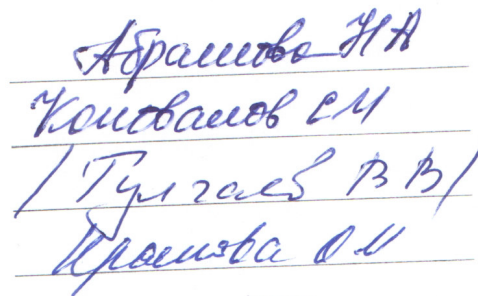 Абрамова НА
Коновалов СМ
/ Тулгаев ВВ /
Крамова ОМ